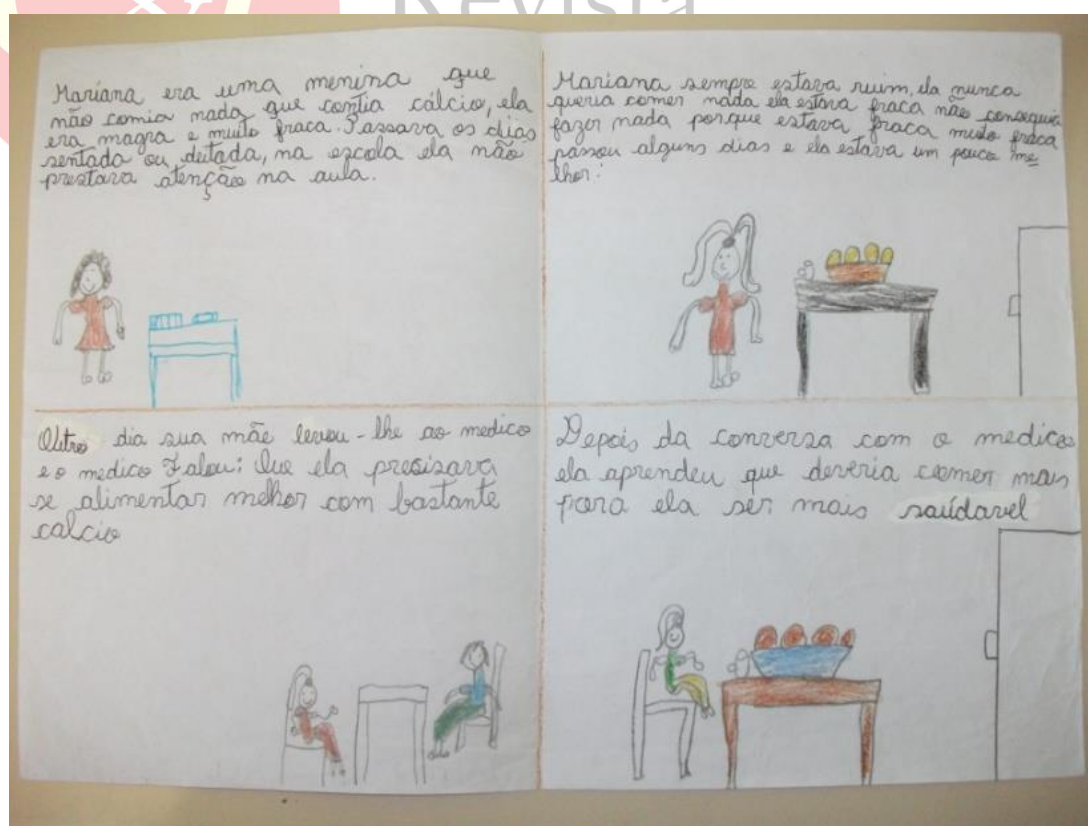 Revista
Mariana era uma menina que
não comia nada que contia cálcio, ela
era magra e muito fraca. Passava os dias
sentada ou deitada, na escola ela não
prestava atenção na aula.
Mariana sempre estava ruim, ela nunca
queria comer nada ela estava fraca não conseguia
fazer nada porque estava fraca muito fraca
passou alguns dias e ela estava um pouco me
lhor.
Outro dia sua mãe levou-lhe ao medico
e o medico Falou: Que ela presizava
se alimentar melhor com bastante
calcio
Depois da conversa com o medico
ela aprendeu que deveria comer mais
para ela ser mais saúdavel